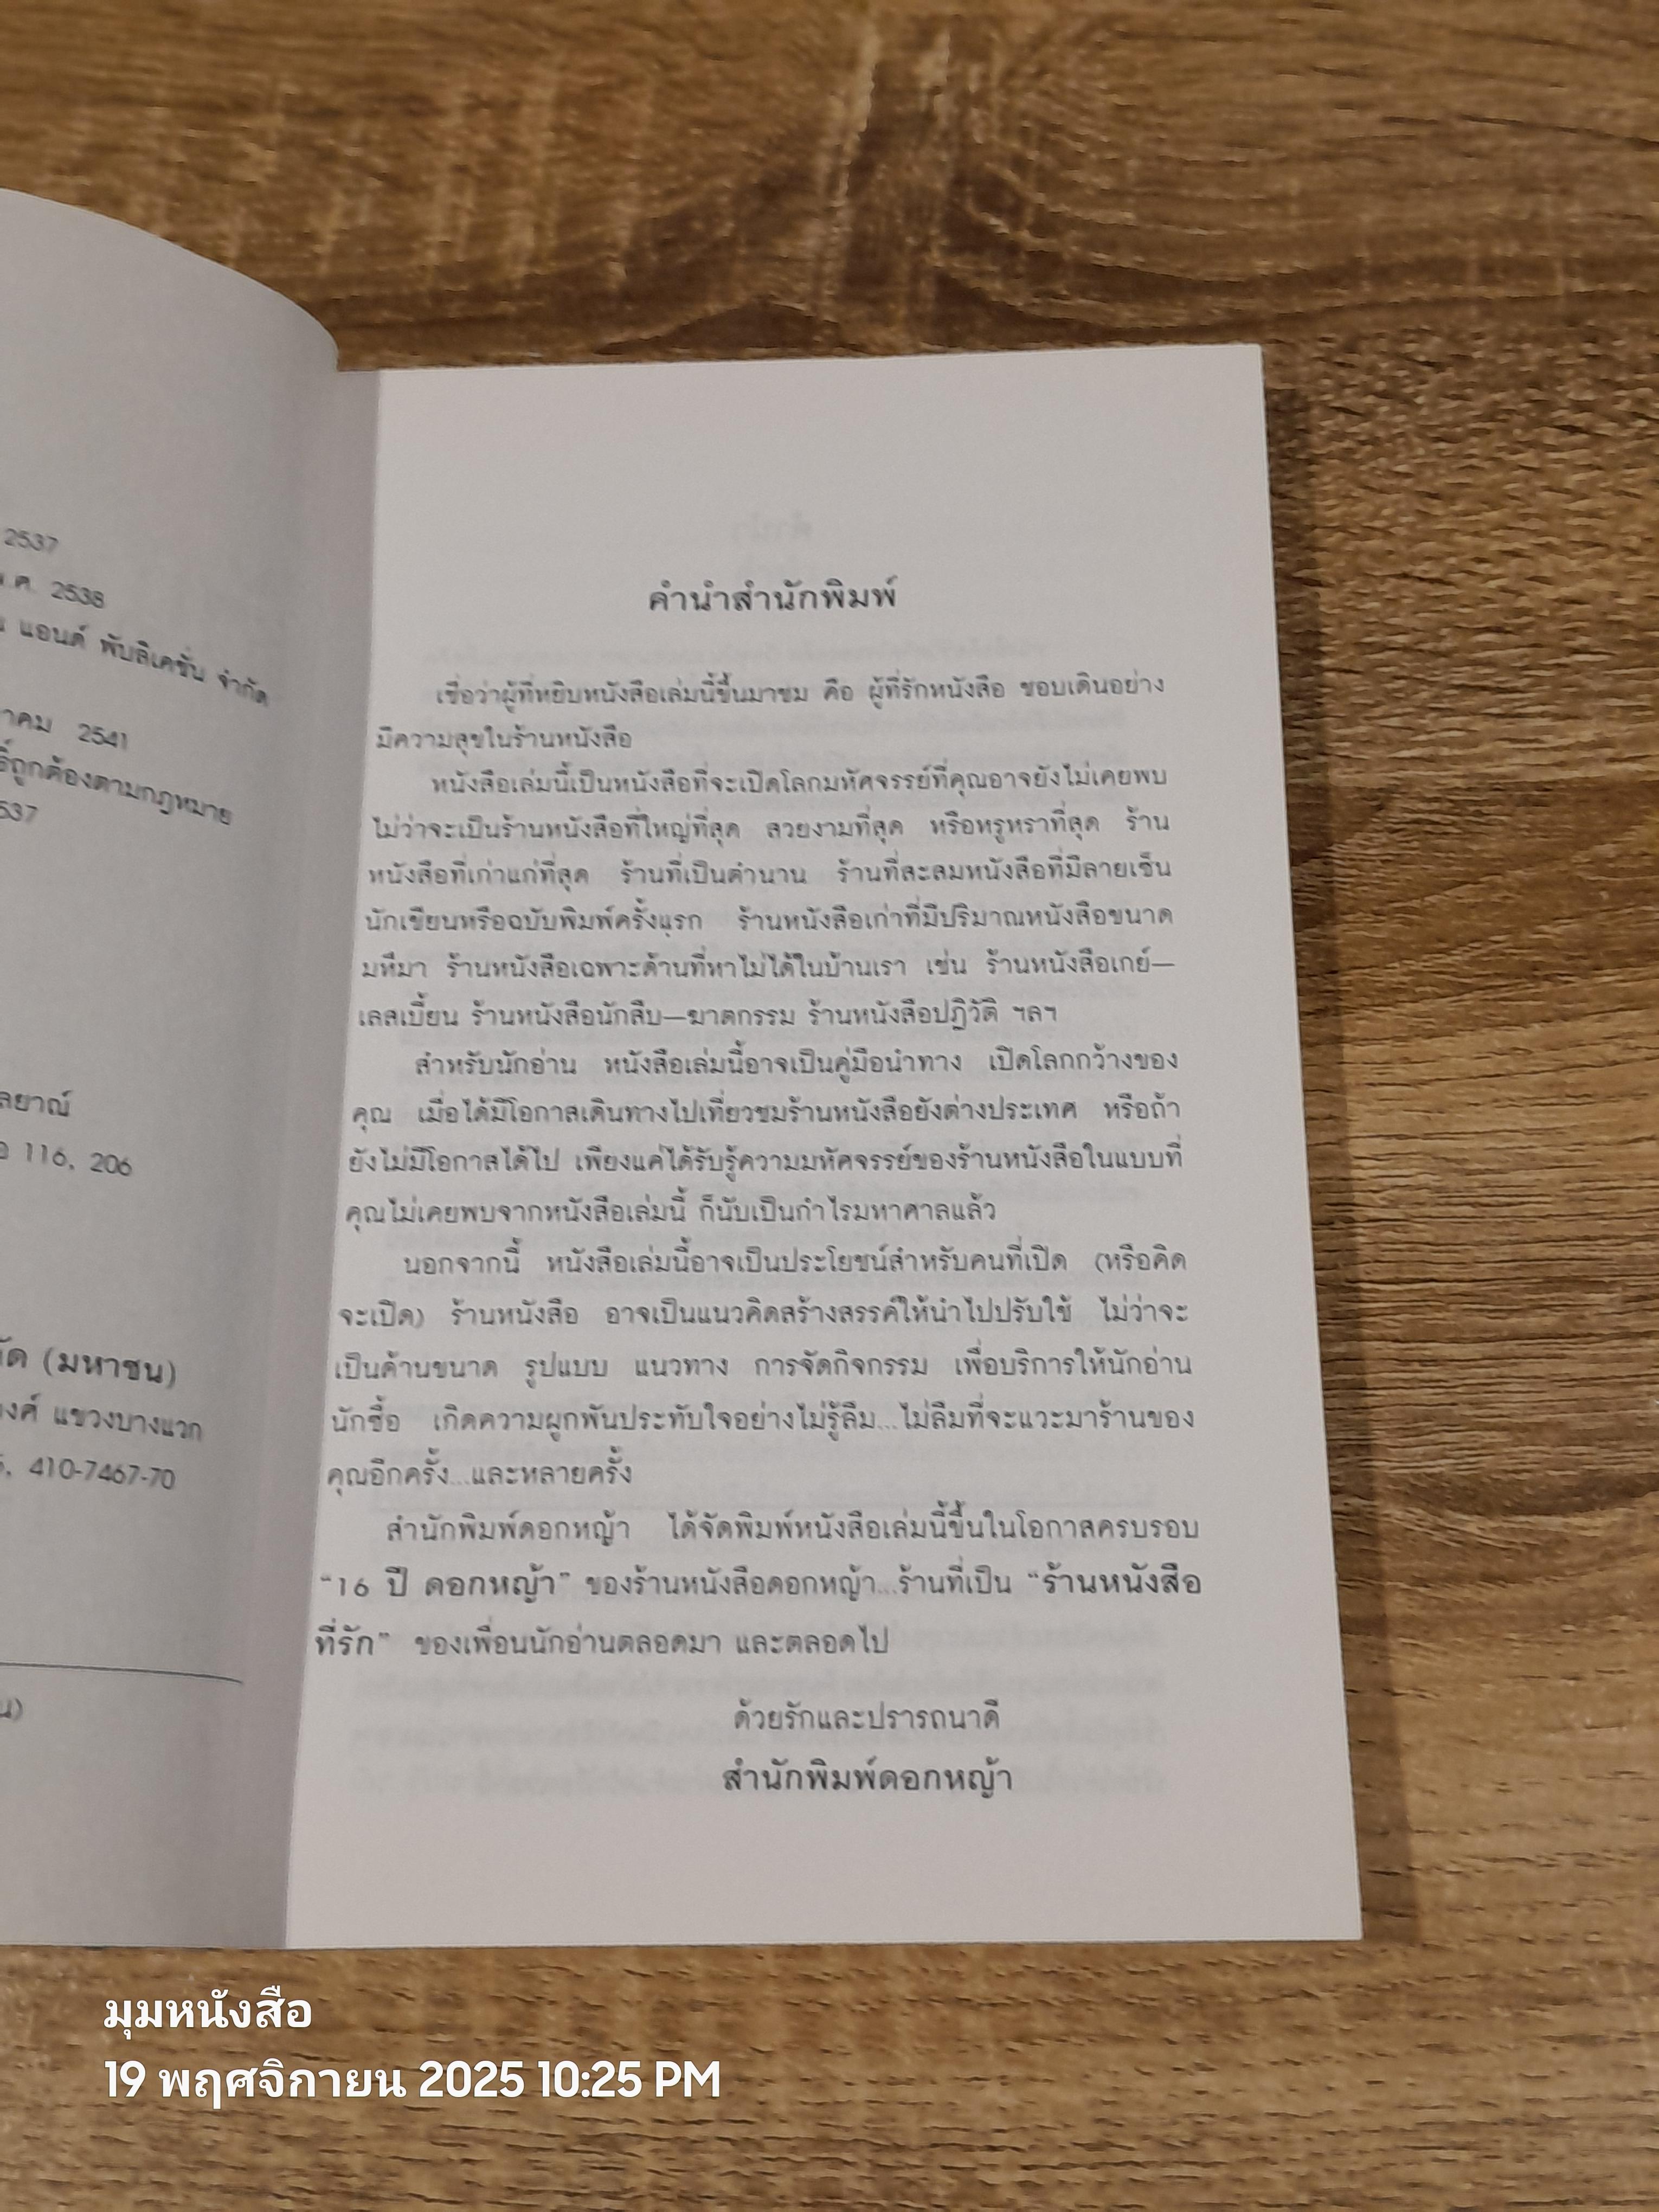 2537
พ.ศ. 2538
แอนด์ พับลิเคชั่น จำกัด
าคม 2541
ธิ์ถูกต้องตามกฎหมาย
537
ลยาณ์
อ 116, 206
กัด (มหาชน)
งศ์ แขวงบางแวก
410-7467-70
น)
คำนำสำนักพิมพ์
เชื่อว่าผู้ที่หยิบหนังสือเล่มนี้ขึ้นมาชม คือ ผู้ที่รักหนังสือ ชอบเดินอย่าง
มีความสุขในร้านหนังสือ
หนังสือเล่มนี้เป็นหนังสือที่จะเปิดโลกมหัศจรรย์ที่คุณอาจยังไม่เคยพบ
ไม่ว่าจะเป็นร้านหนังสือที่ใหญ่ที่สุด สวยงามที่สุด หรือหรูหราที่สุด ร้าน
หนังสือที่เก่าแก่ที่สุด ร้านที่เป็นตำนาน ร้านที่สะสมหนังสือที่มีลายเซ็น
นักเขียนหรือฉบับพิมพ์ครั้งแรก ร้านหนังสือเก่าที่มีปริมาณหนังสือขนาด
มหึมา ร้านหนังสือเฉพาะด้านที่หาไม่ได้ในบ้านเรา เช่น ร้านหนังสือเกย์—
เลสเบี้ยน ร้านหนังสือนักสืบ—ฆาตกรรม ร้านหนังสือปฏิวัติ ฯลฯ
สำหรับนักอ่าน หนังสือเล่มนี้อาจเป็นคู่มือนำทาง เปิดโลกกว้างของ
คุณ เมื่อได้มีโอกาสเดินทางไปเที่ยวชมร้านหนังสือยังต่างประเทศ หรือถ้า
ยังไม่มีโอกาสได้ไป เพียงแค่ได้รับรู้ความมหัศจรรย์ของร้านหนังสือในแบบที่
คุณไม่เคยพบจากหนังสือเล่มนี้ ก็นับเป็นกำไรมหาศาลแล้ว
นอกจากนี้ หนังสือเล่มนี้อาจเป็นประโยชน์สำหรับคนที่เปิด (หรือคิด
จะเปิด) ร้านหนังสือ อาจเป็นแนวคิดสร้างสรรค์ให้นำไปปรับใช้ ไม่ว่าจะ
เป็นด้านขนาด รูปแบบ แนวทาง การจัดกิจกรรม เพื่อบริการให้นักอ่าน
นักซื้อ เกิดความผูกพันประทับใจอย่างไม่รู้ลืม...ไม่ลืมที่จะแวะมาร้านของ
คุณอีกครั้ง...และหลายครั้ง
สำนักพิมพ์ดอกหญ้า ได้จัดพิมพ์หนังสือเล่มนี้ขึ้นในโอกาสครบรอบ
“16 ปี ดอกหญ้า” ของร้านหนังสือดอกหญ้า...ร้านที่เป็น “ร้านหนังสือ
ที่รัก” ของเพื่อนนักอ่านตลอดมา และตลอดไป
ด้วยรักและปรารถนาดี
สำนักพิมพ์ดอกหญ้า
มุมหนังสือ
19 พฤศจิกายน 2025 10:25 PM